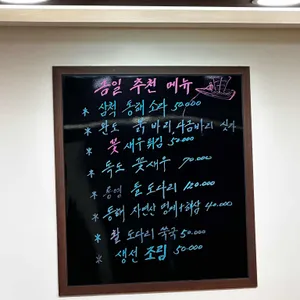 금일 추천 메뉴
* 삼척 동해 소라 50,000
* 완도 붉바리, 다금바리 싯가
* 꽃새우회 50,000
* 독도 꽃새우 70,000
* 돌도다리 120,000
* 동해 자연산 멍게+해삼 40,000
* 참도다리 쑥국 50,000
* 생선 조림 50,000